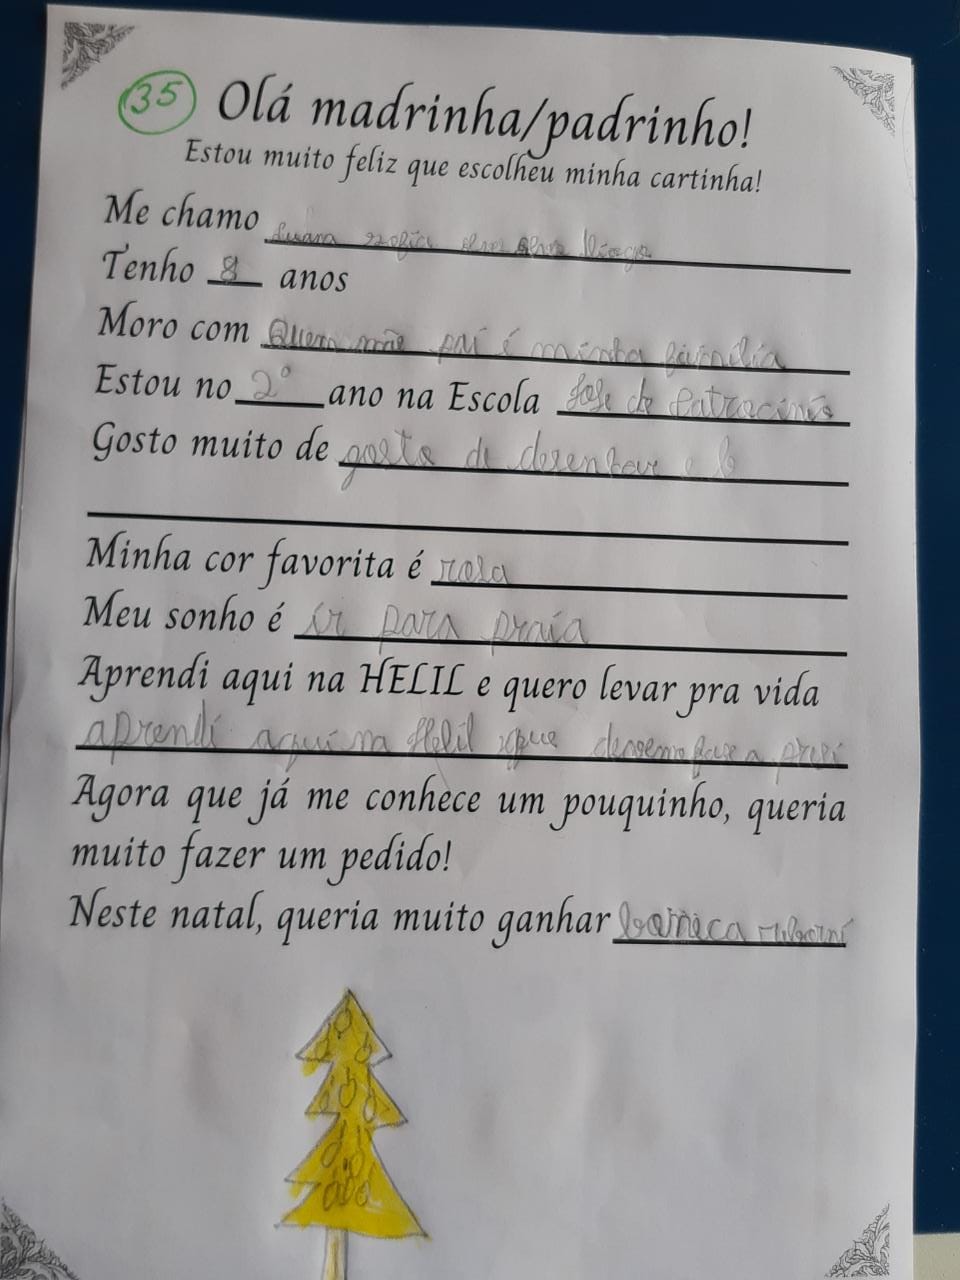 35 Olá madrinha/padrinho!
Estou muito feliz que escolheu minha cartinha!
Me chamo
Tenho 8 anos
Moro com mãe pai é minha família
Estou no 2º ano na Escola José do Patrocínio
Gosto muito de gosto di desenhar e
Minha cor favorita é rosa
Meu sonho é ir para praia
Aprendi aqui na HELIL e quero levar pra vida
aprendi aqui na Helil que
Agora que já me conhece um pouquinho, queria
muito fazer um pedido!
Neste natal, queria muito ganhar boneca